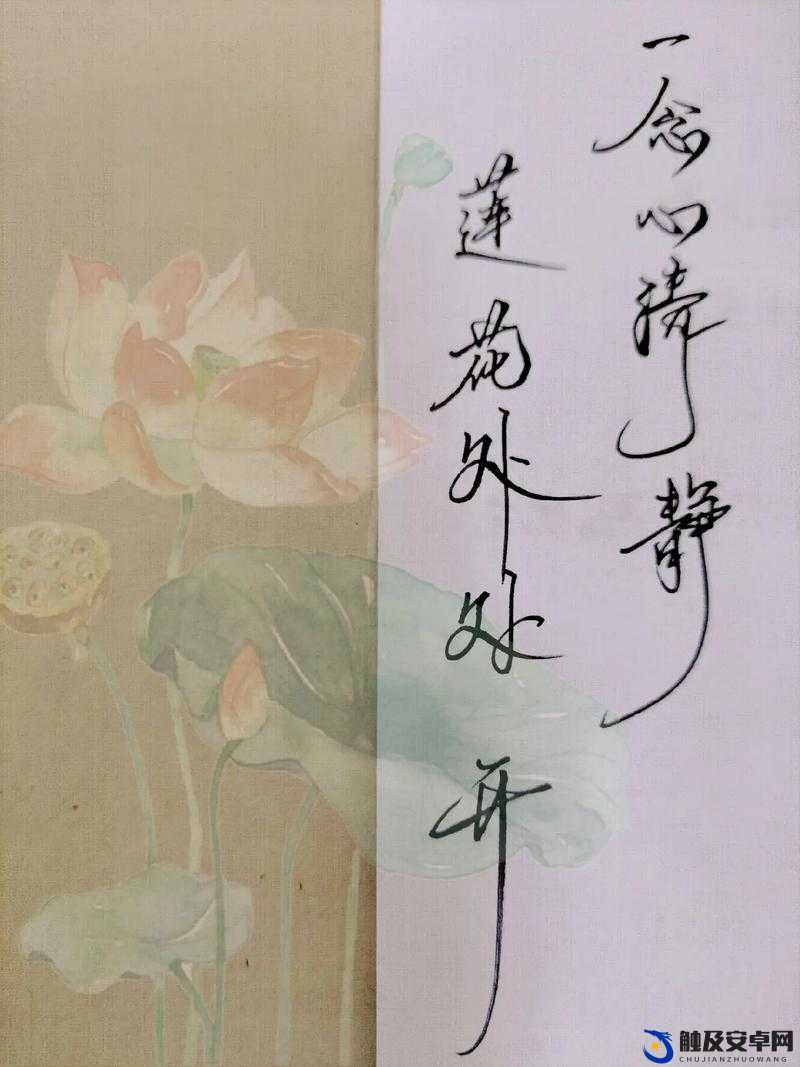 一念心清静
莲花处处开
触及安卓网
CHUJIANZHUOWANG